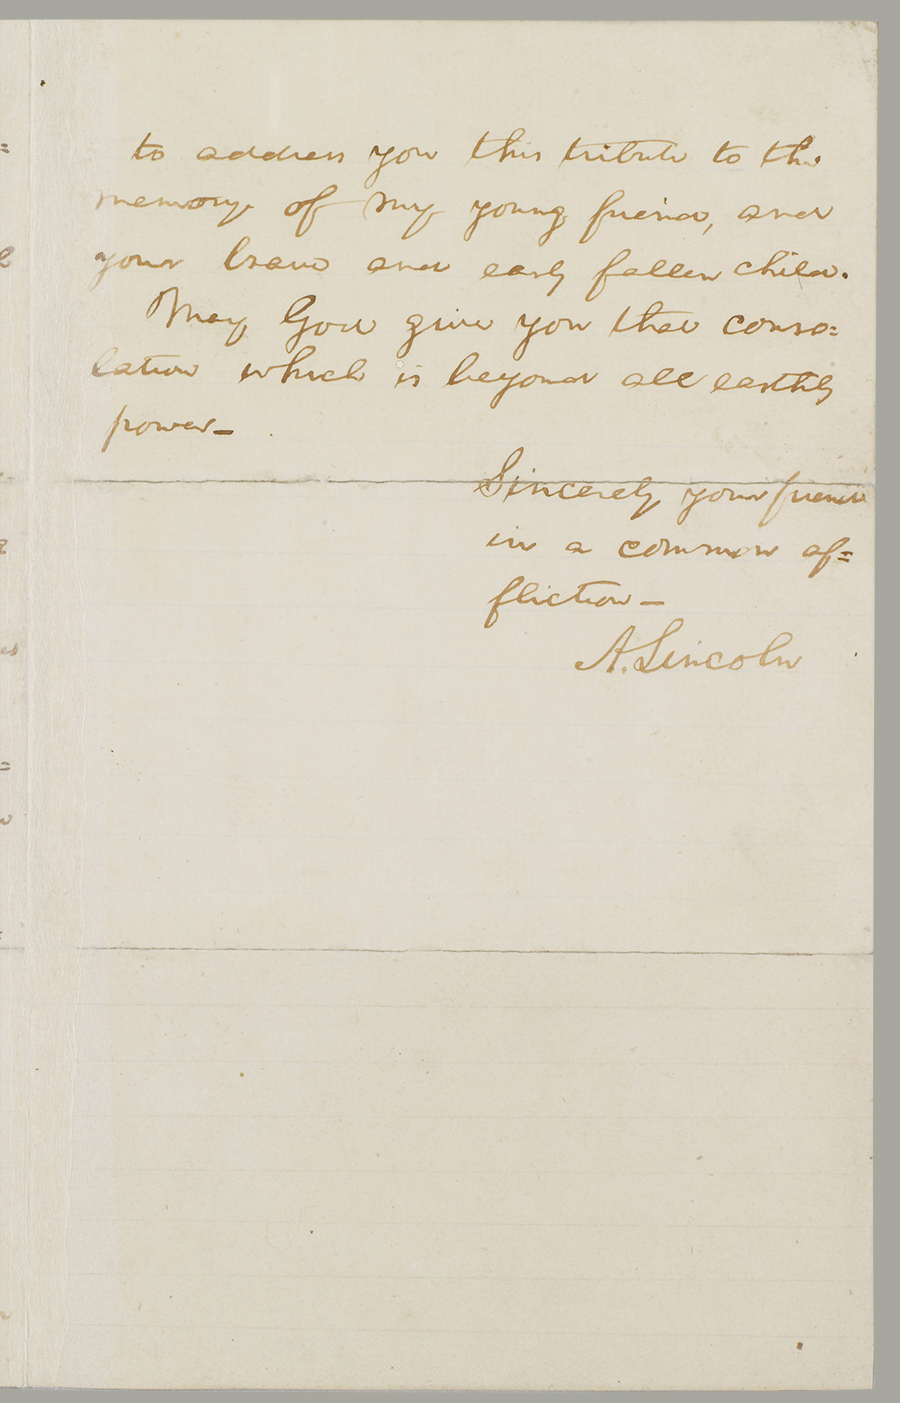 to address you this tribute to the
memory of my young friend, and
your brave and early fallen child.
May God give you that conso=
lation which is beyond all earthly
power—
Sincerely your friend
in a common af=
fliction—
A. Lincoln